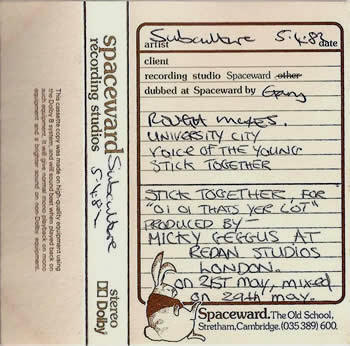 This cassette copy was made on high-quality equipment using
the Dolby B system, and will sound best when played back on
such equipment. It will give normal mono playback on mono
equipment and a brighter sound on non-Dolby equipment.
spaceward
recording studios
Subculture
5.4.82
stereo
Dolby
Subculture 5.4.82
artist date
client
recording studio Spaceward other
dubbed at Spaceward by Gary
ROUGH MIXES.
UNIVERSITY CITY
VOICE OF THE YOUNG
STICK TOGETHER
STICK TOGETHER, FOR
"OI OI THATS YER LOT"
PRODUCED BY-
MICKY GEGGUS AT
REDAN STUDIOS
LONDON.
on 21ST may, mixed
on 29th may.
Spaceward. The Old School,
Stretham, Cambridge. (035 389) 600.